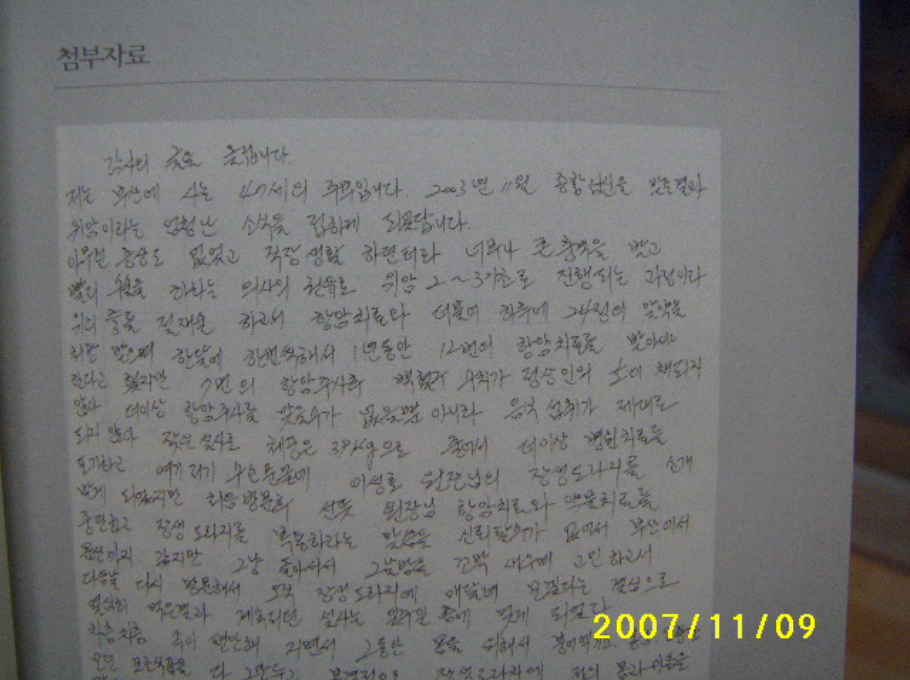 첨부자료
감사의 글을 올립니다.
저는 부산에 사는 47세의 주부입니다. 2003년 11월 종합검진을 받은결과
위암이라는 엄청난 소식을 접하게 되었답니다.
아무런 증상도 없었고 직장생활 하면터라 너무나 큰 충격을 받고
빨리 수술을 하라는 의사의 권유로 위암 2~3기초로 진행되는 과정이라
위의 줄을 절제술 하고서 항암치료와 더불어 하루에 24알의 알약을
처방 받으며 한달에 한번씩해서 1년동안 12번의 항암치료를 받아야
한다고 했지만 7번의 항암주사후 백혈구 수치가 정상인의 도 채되지
않아 더이상 항암주사를 맞을수가 없을뿐 아니라 음식 섭취가 제대로
되지 않아 잦은 설사로 체중은 39kg으로 줄어서 더이상 병원치료를
포기하고 여기저기 수소문끝에 이성호 원장님의 장생도라지를 소개
받게 되었지만 처음 방문후 선뜻 원장님 항암치료와 약물치료를
중단하고 장생 도라지를 복용하라는 말씀을 신뢰할수가 없어서 부산에서
까지 갔지만 그냥 돌아와서 그날밤을 꼬박 새우며 고민하고서
다음날 다시 방문해서 오직 장생도라지에 매달려 보겠다는 결심으로
열심히 먹은결과 계속되던 설사는 일주일 만에 멎게 되었다
차츰차츰 속이 편안해 지면서 그동안 몸을 위해서
모든 보조식품을 다 그만두고 장생도라지에 저의 몸과 마음을
2007/11/09